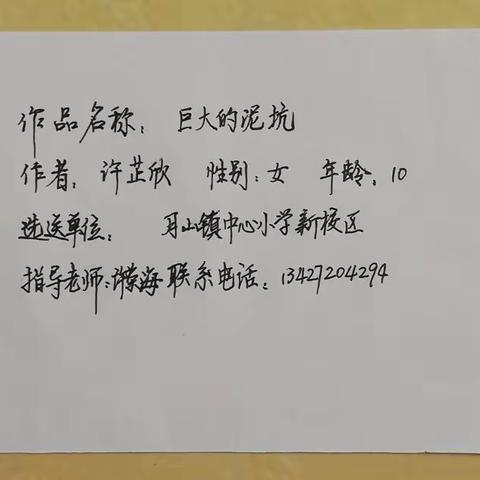 作品名称：巨大的泥坑
作者：许芷欣 性别：女 年龄：10
选送单位：月山镇中心小学新校区
指导老师：海 联系电话：13427204294